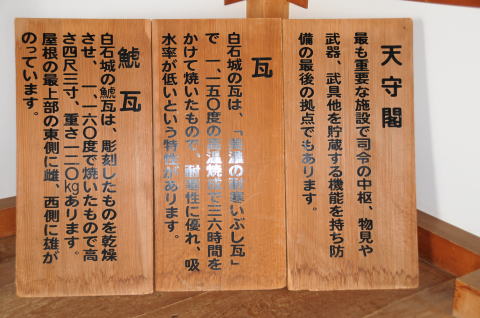 天守閣
最も重要な施設で司令の中枢、物見や
武器、武具他を貯蔵する機能を持ち防
備の最後の拠点でもあります。
瓦
白石城の瓦は、「美濃の耐寒いぶし瓦」
で一、一五〇度の高温焼成で三六時間を
かけて焼いたもので、耐寒性に優れ、吸
水率が低いという特性があります。
鯱瓦
白石城の鯱瓦は、彫刻したものを乾燥
させ、一、一六〇度で焼いたもので高
さ四尺三寸、重さ一二〇kgあります。
屋根の最上部の東側に雌、西側に雄が
のっています。